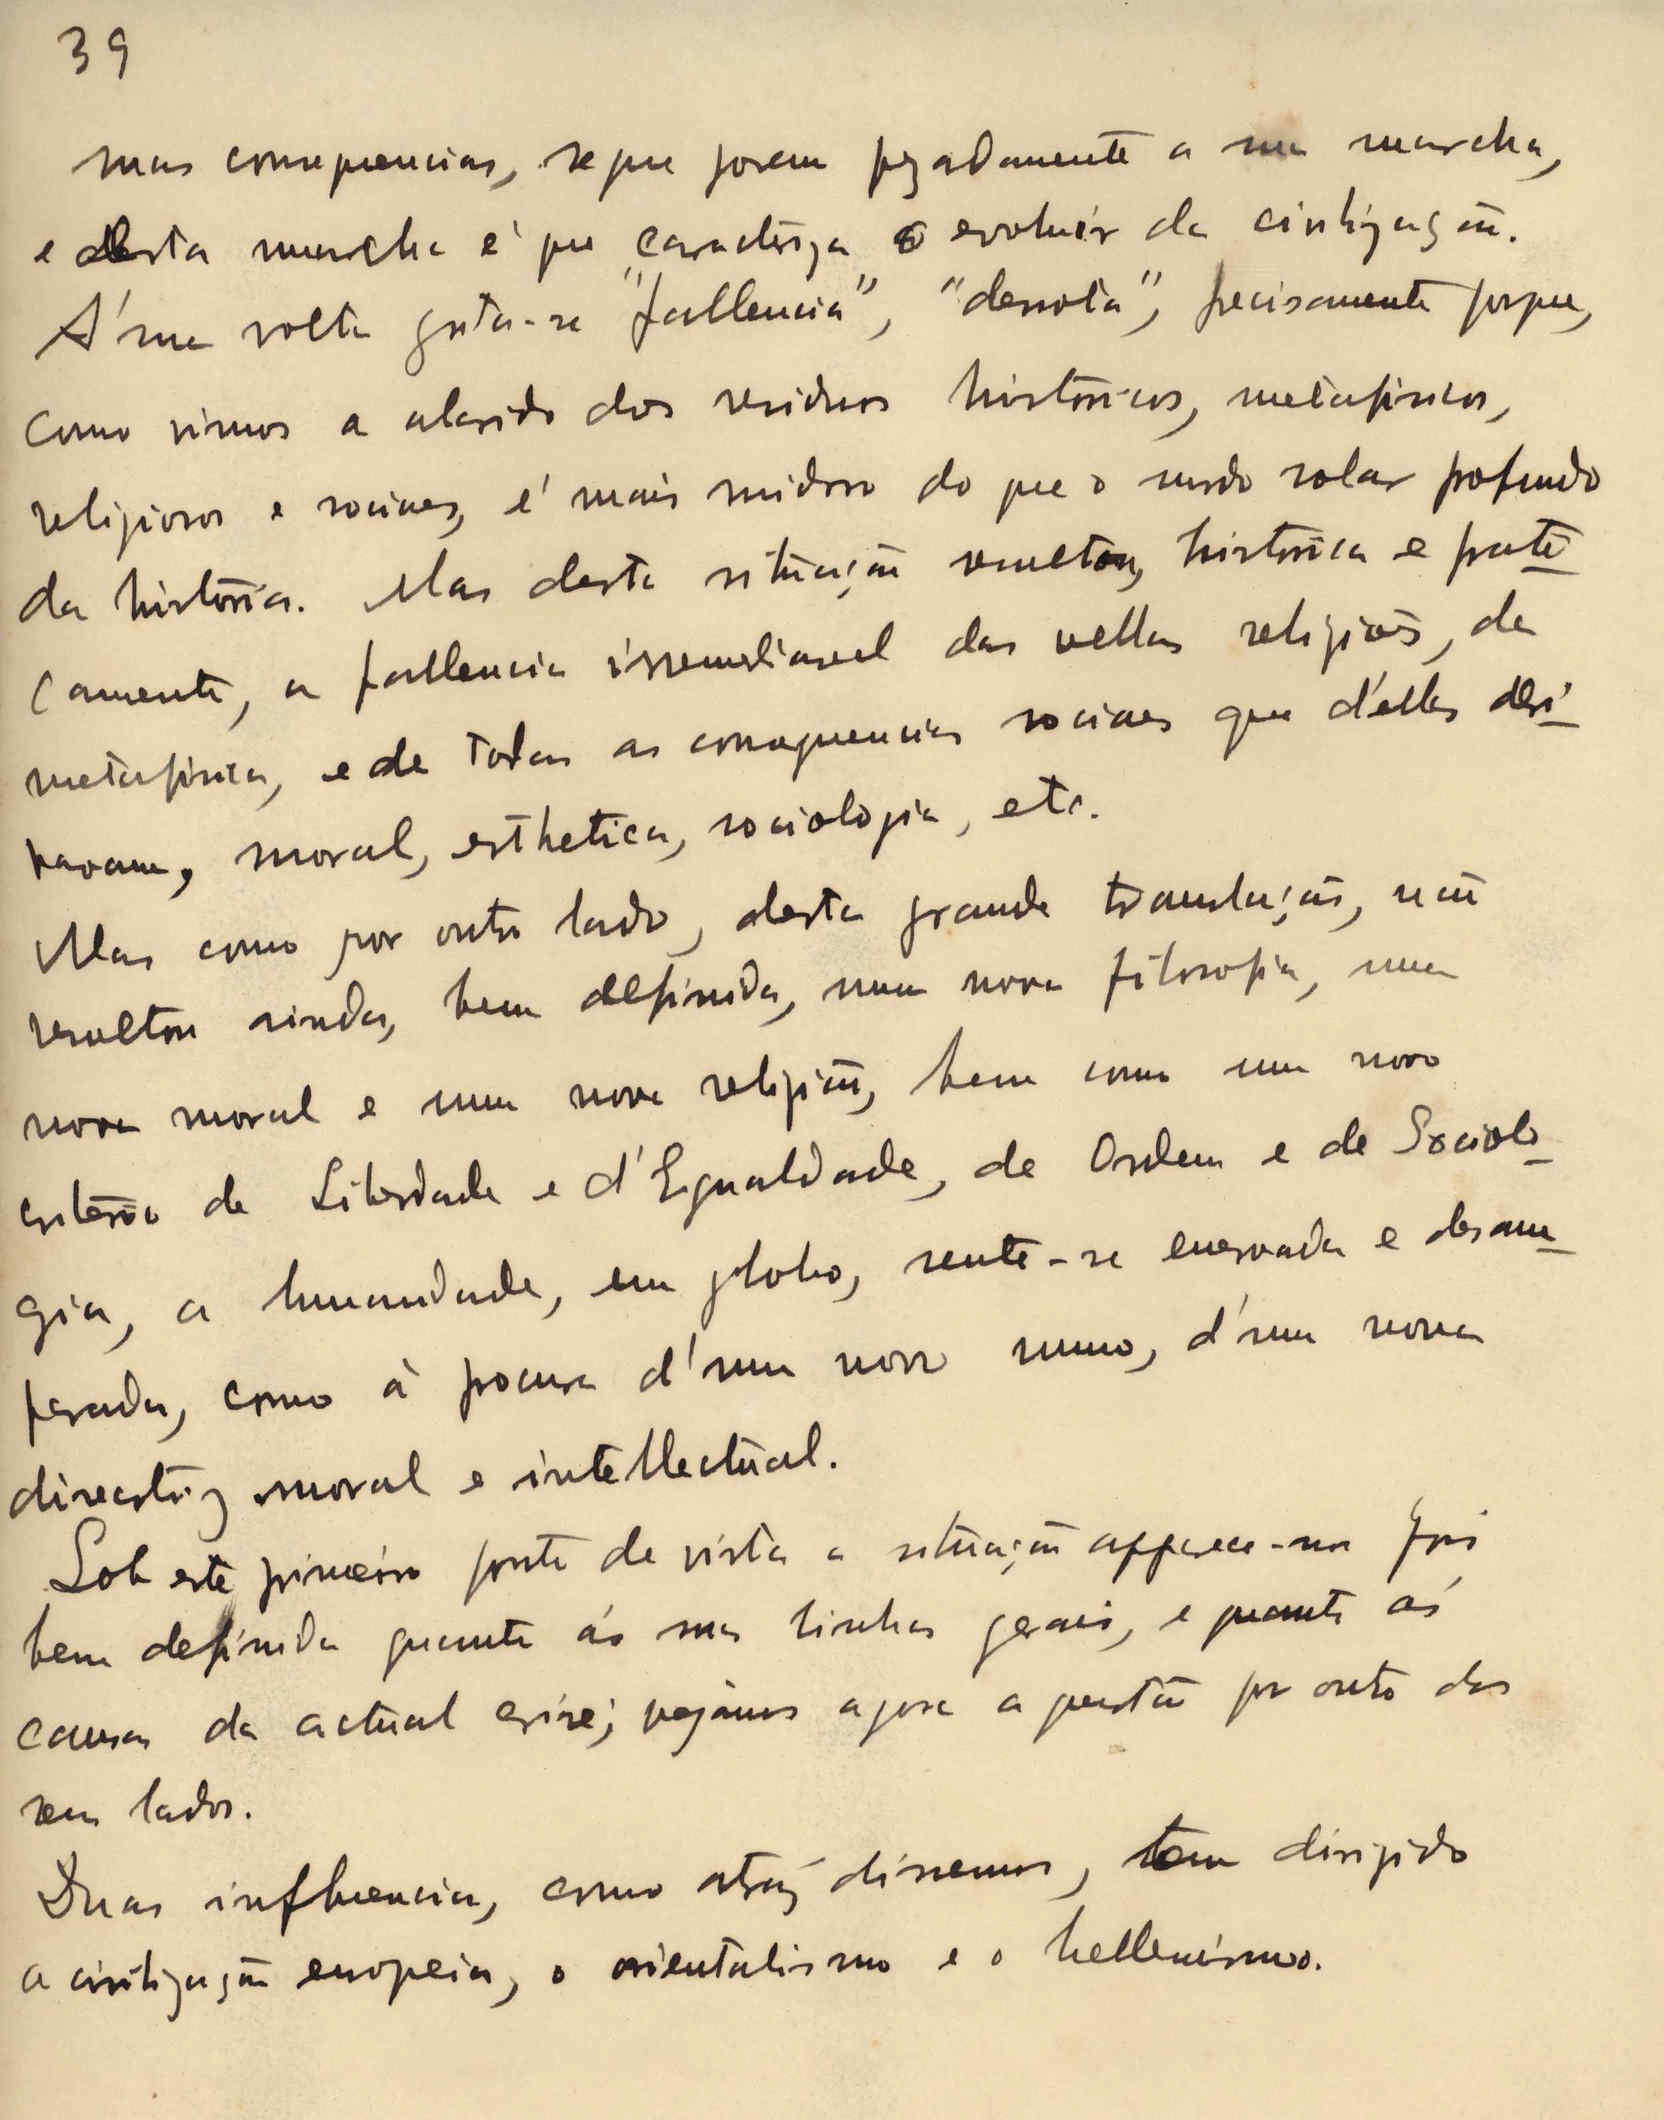 39
mas consequencias, segue porem pezadamente a sua marcha,
e desta marcha é que caracteriza o evoluir da civilização.
Á sua volta grita-se "fallencia", "derrota", precisamente porque,
como vimos a alarido dos residuos históricos, metafisicos,
religiosos e sociaes, é mais ruidoso do que o surdo rolar profundo
da história. Mas desta situação resultou, histórica e prati-
camente, a fallencia irremediavel das velhas religiões, da
metafisica, e de todas as consequencias sociaes que d'ellas deri-
vavam, moral, esthetica, sociologia, etc.
Mas como por outro lado, desta grande translação, não
resultou ainda, bem definida, uma nova filosofia, uma
nova moral e uma nova religião, bem como um novo
critério de Liberdade e d'Egualdade, de Ordem e de Sociolo-
gia, a humanidade, em globo, sente-se enervada e desam-
parada, como à procura d'um novo rumo, d'uma nova
directriz moral e intellectual.
Sob este primeiro ponto de vista a situação apparece-nos pois
bem definida quanto ás suas linhas gerais, e quanto ás
causas da actual crise; vejâmos agora a questão por outro dos
seus lados.
Duas influencias, como atraz dissemos, tem dirigido
a civilização europeia, o orientalismo e o hellenismo.